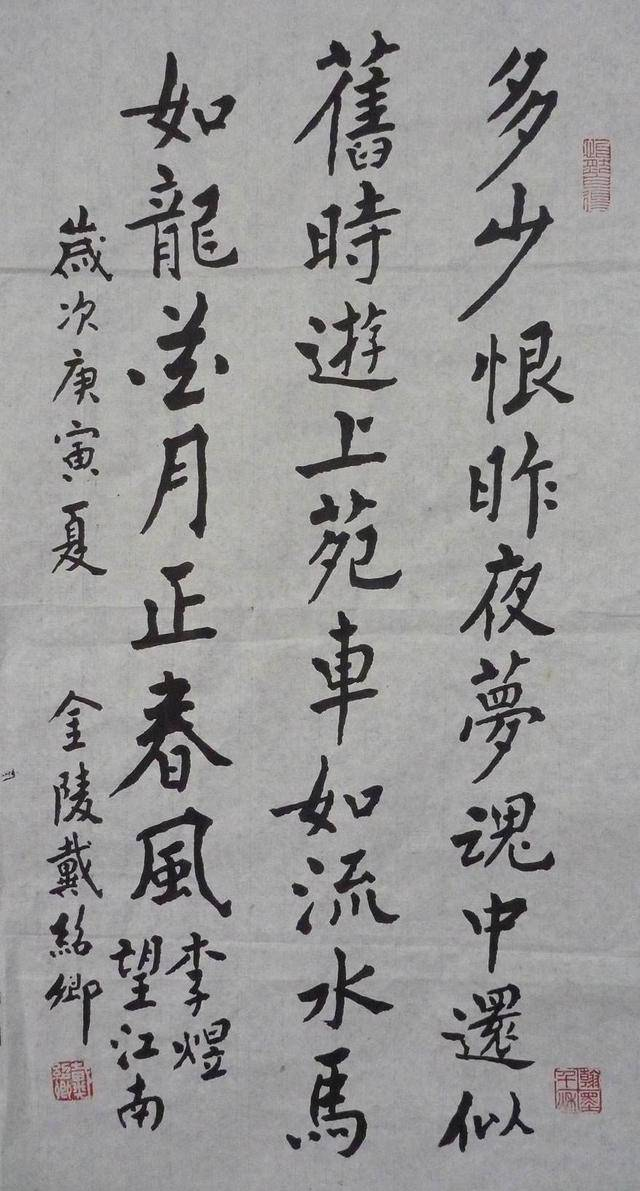 多少恨昨夜夢魂中還似
舊時遊上苑車如流水馬
如龍花月正春風
李煜
望江南
歲次庚寅夏
金陵戴紹卿